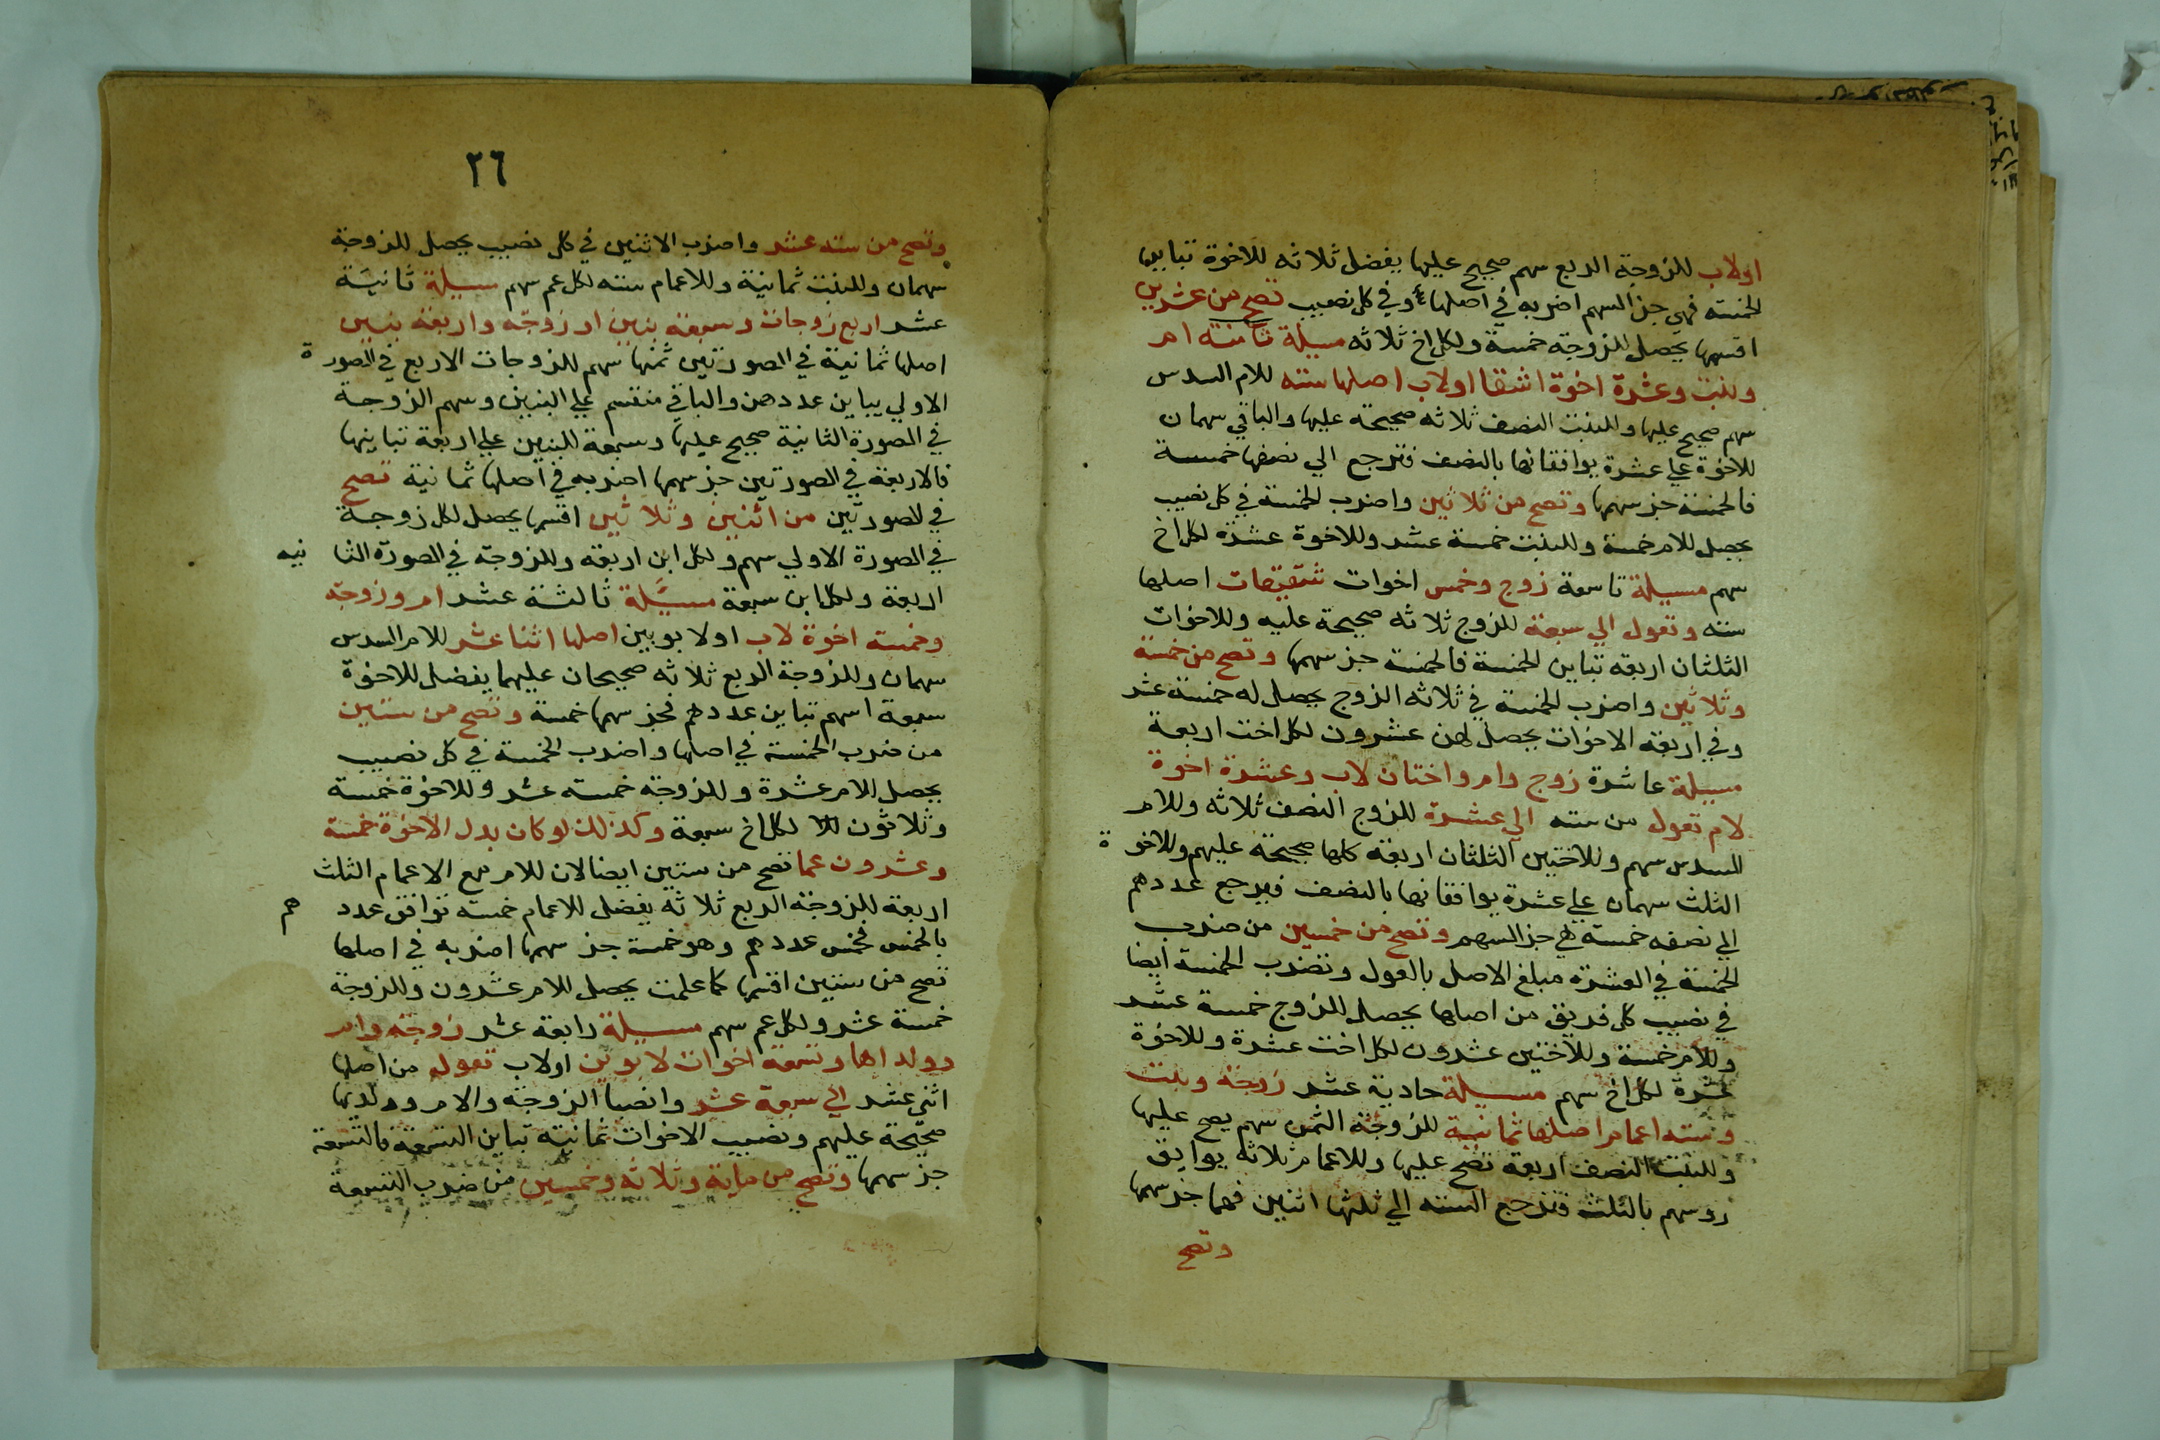 اولاب للزوجة الربع سهم صحيح عليها يفضل ثلاثه للاخوة تباين
الخمسه فهي جز السهم اضربه في اصلها ٤ وفي كل نصيب تصح من عشرين
اقسمها يحصل للزوجة خمسة ولكل اخ ثلاثه مسيلة ثامنه ام
وبنت وعشرة اخوة اشقا اولاب اصلها سته للام السدس
سهم صحيح عليها وللبنت النصف ثلاثه صحيحة عليها والباقي سهمان
للاخوة علي عشرة يوافقانها بالنصف فترجع الي نصفها خمسة
فالخمسة جز سهمها وتصح من ثلاثين واضرب الخمسة في كل نصيب
يحصل للام خمسة وللبنت خمسة عشر وللاخوة عشرة لكل اخ
سهم مسيلة تاسعة زوج وخمس اخوات شقيقات اصلها
سته وتعول الي سبعة للزوج ثلاثه صحيحة عليه وللاخوات
الثلثان اربعه تباين الخمسة فالخمسة جز سهمها وتصح من خمسة
وثلاثين واضرب الخمسة في ثلاثه الزوج يحصل له خمسة عشر
وفي اربعه الاخوات يحصل لهن عشرون لكل اخت اربعة
مسيلة عاشرة زوج وام واختان لاب وعشرة اخوة
لام تعول من سته الي عشرة للزوج النصف ثلاثه وللام
السدس سهم وللاختين الثلثان اربعه كلها صحيحة عليهم وللاخو ة
الثلث سهمان علي عشرة يوافقانها بالنصف فيرجع عددهم
الي نصفه خمسه هي جز السهم وتصح من خمسين من ضرب
الخمسة في العشرة مبلغ الاصل بالعول وتضرب الخمسة ايضا
في نصيب كل فريق من اصلها يحصل للزوج خمسة عشر
وللام خمسة وللاختين عشرون لكل اخت عشرة وللاخوة
عشرة لكل اخ سهم مسيلة حادية عشر زوجة وبنت
وسته اعمام اصلها ثمانية للزوجة الثمن سهم يصح عليها
وللبنت النصف اربعة تصح عليها وللاعمام ثلاثه يوافق
روسهم بالثلث فترجع السته الي ثلثها اثنين فهما جز سهمها
وتصح
٢٦
وتصح من سته عشر واضرب الاثنين في كل نصيب يحصل للزوجة
سهمان وللبنت ثمانية وللاعمام سته لكل عم سهم مسيلة ثانية
عشر اربع زوجات وسبعة بنين او زوجة واربعة بنين
اصلها ثمانية في الصورتين ثمنها سهم للزوجات الاربع في الصور ة
الاولي يباين عددهن والباقي منقسم علي البنين وسهم الزوجة
في الصورة الثانية صحيح عليها وسبعة البنين علي اربعة تباينها
فالاربعة في الصورتين جز سهمها اضربه في اصلها ثمانية تصح
في الصورتين من اثنين وثلاثين اقسمها يحصل لكل زوجة
في الصورة الاولي سهم ولكل ابن اربعه وللزوجة في الصورة الثا نيه
اربعة ولكل ابن سبعة مسيلة ثالثة عشر ام وزوجة
وخمسة اخوة لاب اولابوين اصلها اثنا عشر للام السدس
سهمان وللزوجة الربع ثلاثه صحيحان عليهما يفضل للاخوة
سبعة اسهم تباين عددهم فجز سهمها خمسة وتصح من ستين
من ضرب الخمسة في اصلها واضرب الخمسة في كل نصيب
يحصل للام عشرة وللزوجة خمسه عشر وللاخوة خمسة
وثلاثون لكل اخ سبعة وكذلك لو كان بدل الاخوة خمسة
وعشرون عما تصح من ستين ايضا لان للام مع الاعمام الثلث
اربعة للزوجة الربع ثلاثه يفضل للاعمام خمسه توافق عدد هم
بالخمس فخمس عددهم وهو خمسة جز سهمها اضربه في اصلها
تصح من ستين اقسمها كما علمت يحصل للام عشرون وللزوجة
خمسة عشر ولكل عم سهم مسيلة رابعة عشر زوجة وام
وولداها وتسعة اخوات لابوين اولاب تعول من اصلها
اثني عشر الي سبعة عشر وانصبا الزوجة والام وولديها
صحيحة عليهم ونصيب الاخوات ثمانيه تباين التسعة فالتسعة
جز سهمها وتصح من ماية وثلاثه وخمسين من ضرب التسعة